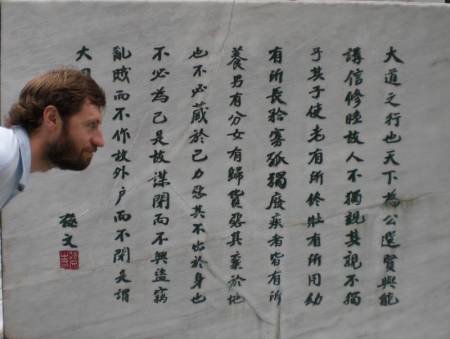 大道之行也天下為公選賢與能
講信修睦故人不獨親其親不獨
子其子使老有所終壯有所用幼
有所長矜寡孤獨廢疾者皆有所
養男有分女有歸貨惡其棄於地
也不必藏於己力惡其不出於身也
不必為己是故謀閉而不興盜竊
亂賊而不作故外戶而不閉是謂
大同
孫文